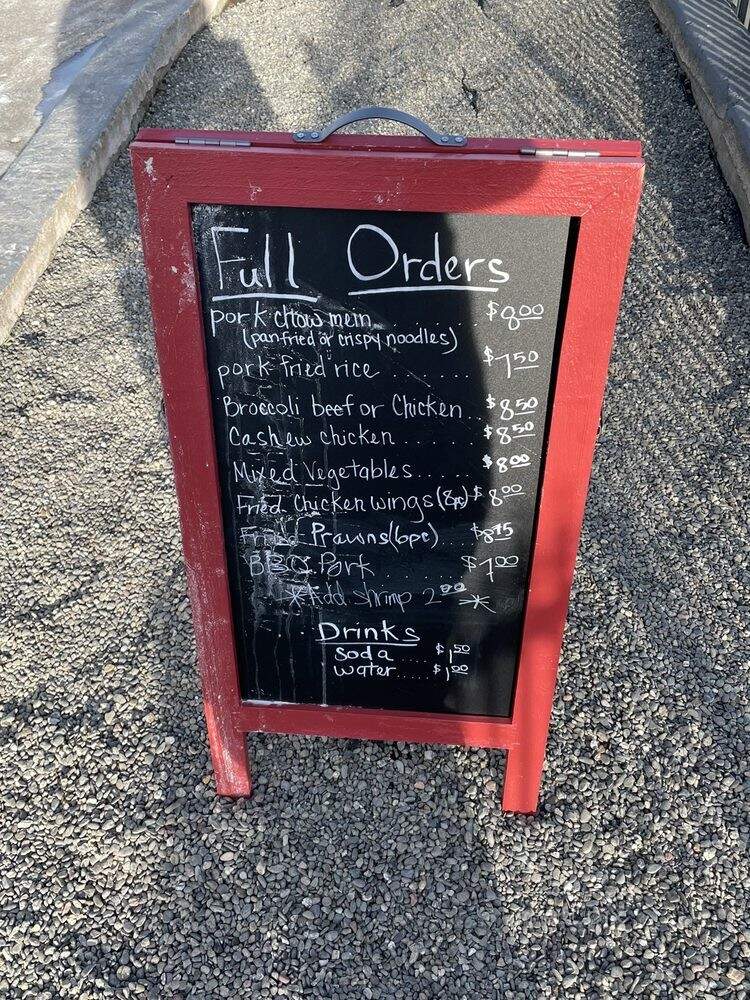 Full Orders
pork chow mein........ $8.00
(panfried or crispy noodles)
pork fried rice ...... $7.50
Broccoli beef or Chicken.. $8.50
Cashew chicken ...... $8.50
Mixed Vegetables...... $8.00
Fried Chicken wings (8pc) $8.00
Fried Prawns (6pc) .... $8.75
BBQ Pork ........ $7.00
*Add shrimp 2.00*
Drinks
soda .... $1.50
water .... $1.00